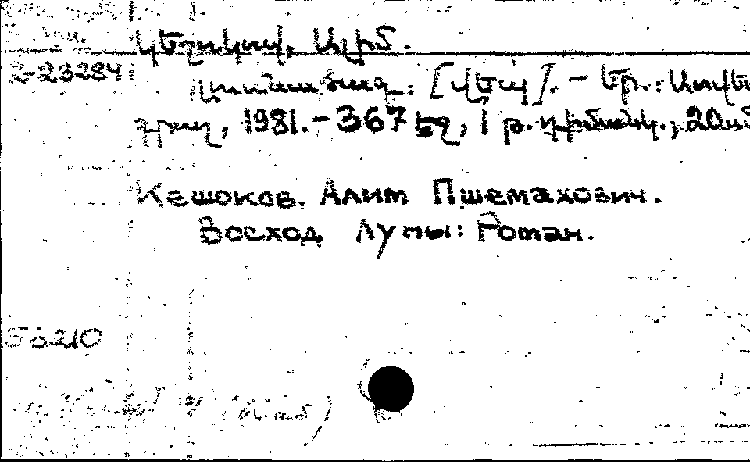 Կեշոկով, Ալիմ.
2-23284
Լուսնածագ: [Վեպ]. - Եր.: Սովետ
գրող, 1981. - 367 էջ, 1 թ. դիմանկ.; 20սմ
Кешоков. Алим Пшемахович.
Восход Луны: Роман.
53210